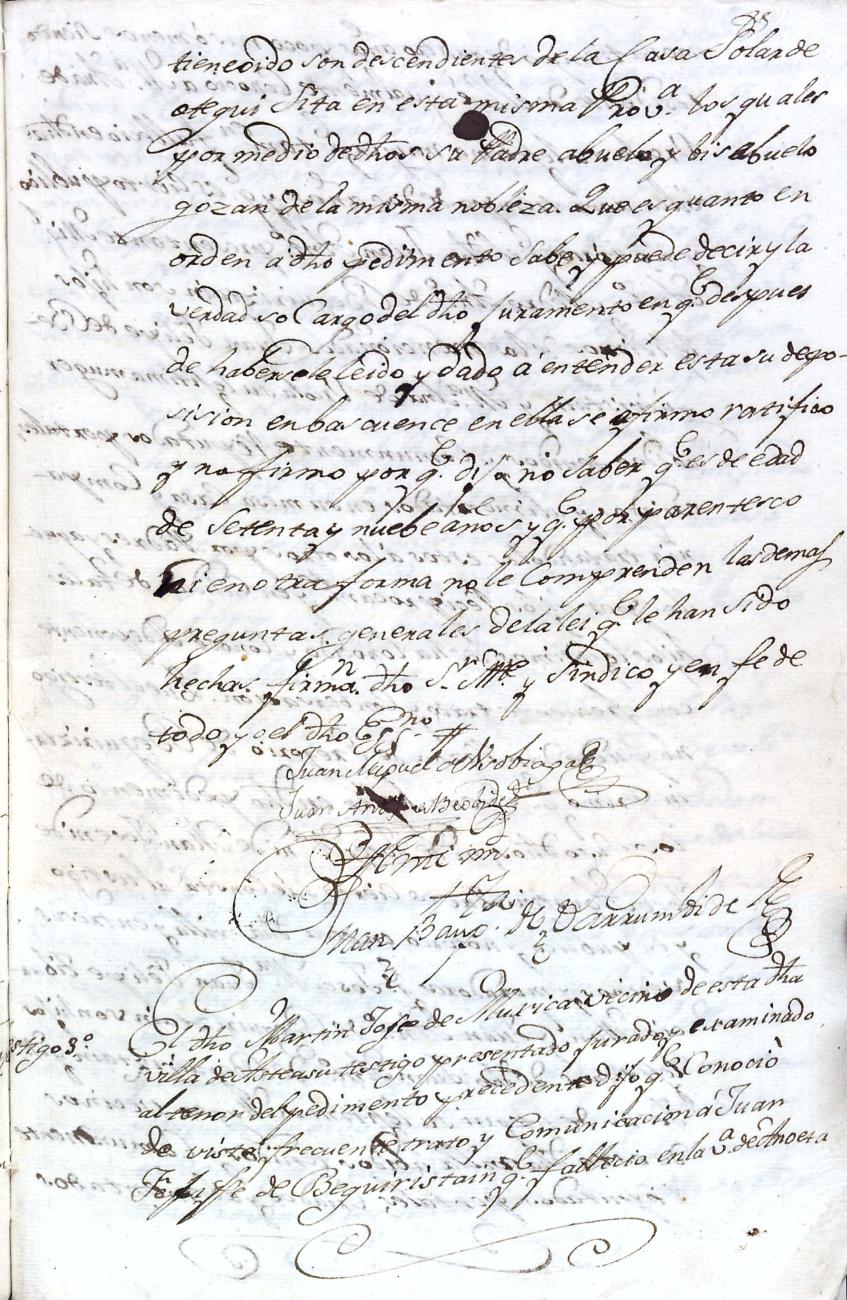 tiene oido son descendientes de la Casa Solar de
otegui Sita en esta misma Prov.a los quales
y por medio de dhos su Padre abuelo y bisabuelo
gozan de la misma nobleza. Que es quanto en
orden a dho pedimento Sabe y puede decir y la
verdad so Cargo del dho Juramento en q.e despues
de haversele leido y dado á entender esta su depo-
sision en bascuence en ella se afirmo ratifico
y no firmo por q.e dijo no saber q.e es de edad
de Setenta y nuebe anos y q.e por parentesco
ni en otra forma no le Comprenden las demas
preguntas generales de la lei q.e le han sido
hechas firma.n dho S.r Alc.e y Sindico y en fe de
todo yo el dho Ess.no
Juan Miguel de
Juan
Ante mi
Juan Baup.ta de Larrumbide
El dho Martin Josef de Muxica vecino de esta dha
stigo 3.o
villa de Asteasu testigo presentado jurado y examinado
al tenor del pedimento precedente dijo q.e Conoció
de vista frecuente trato y Comunicacion á Juan
Felipe de Beguiristain q.e fallecio en la v.a de Anoeta